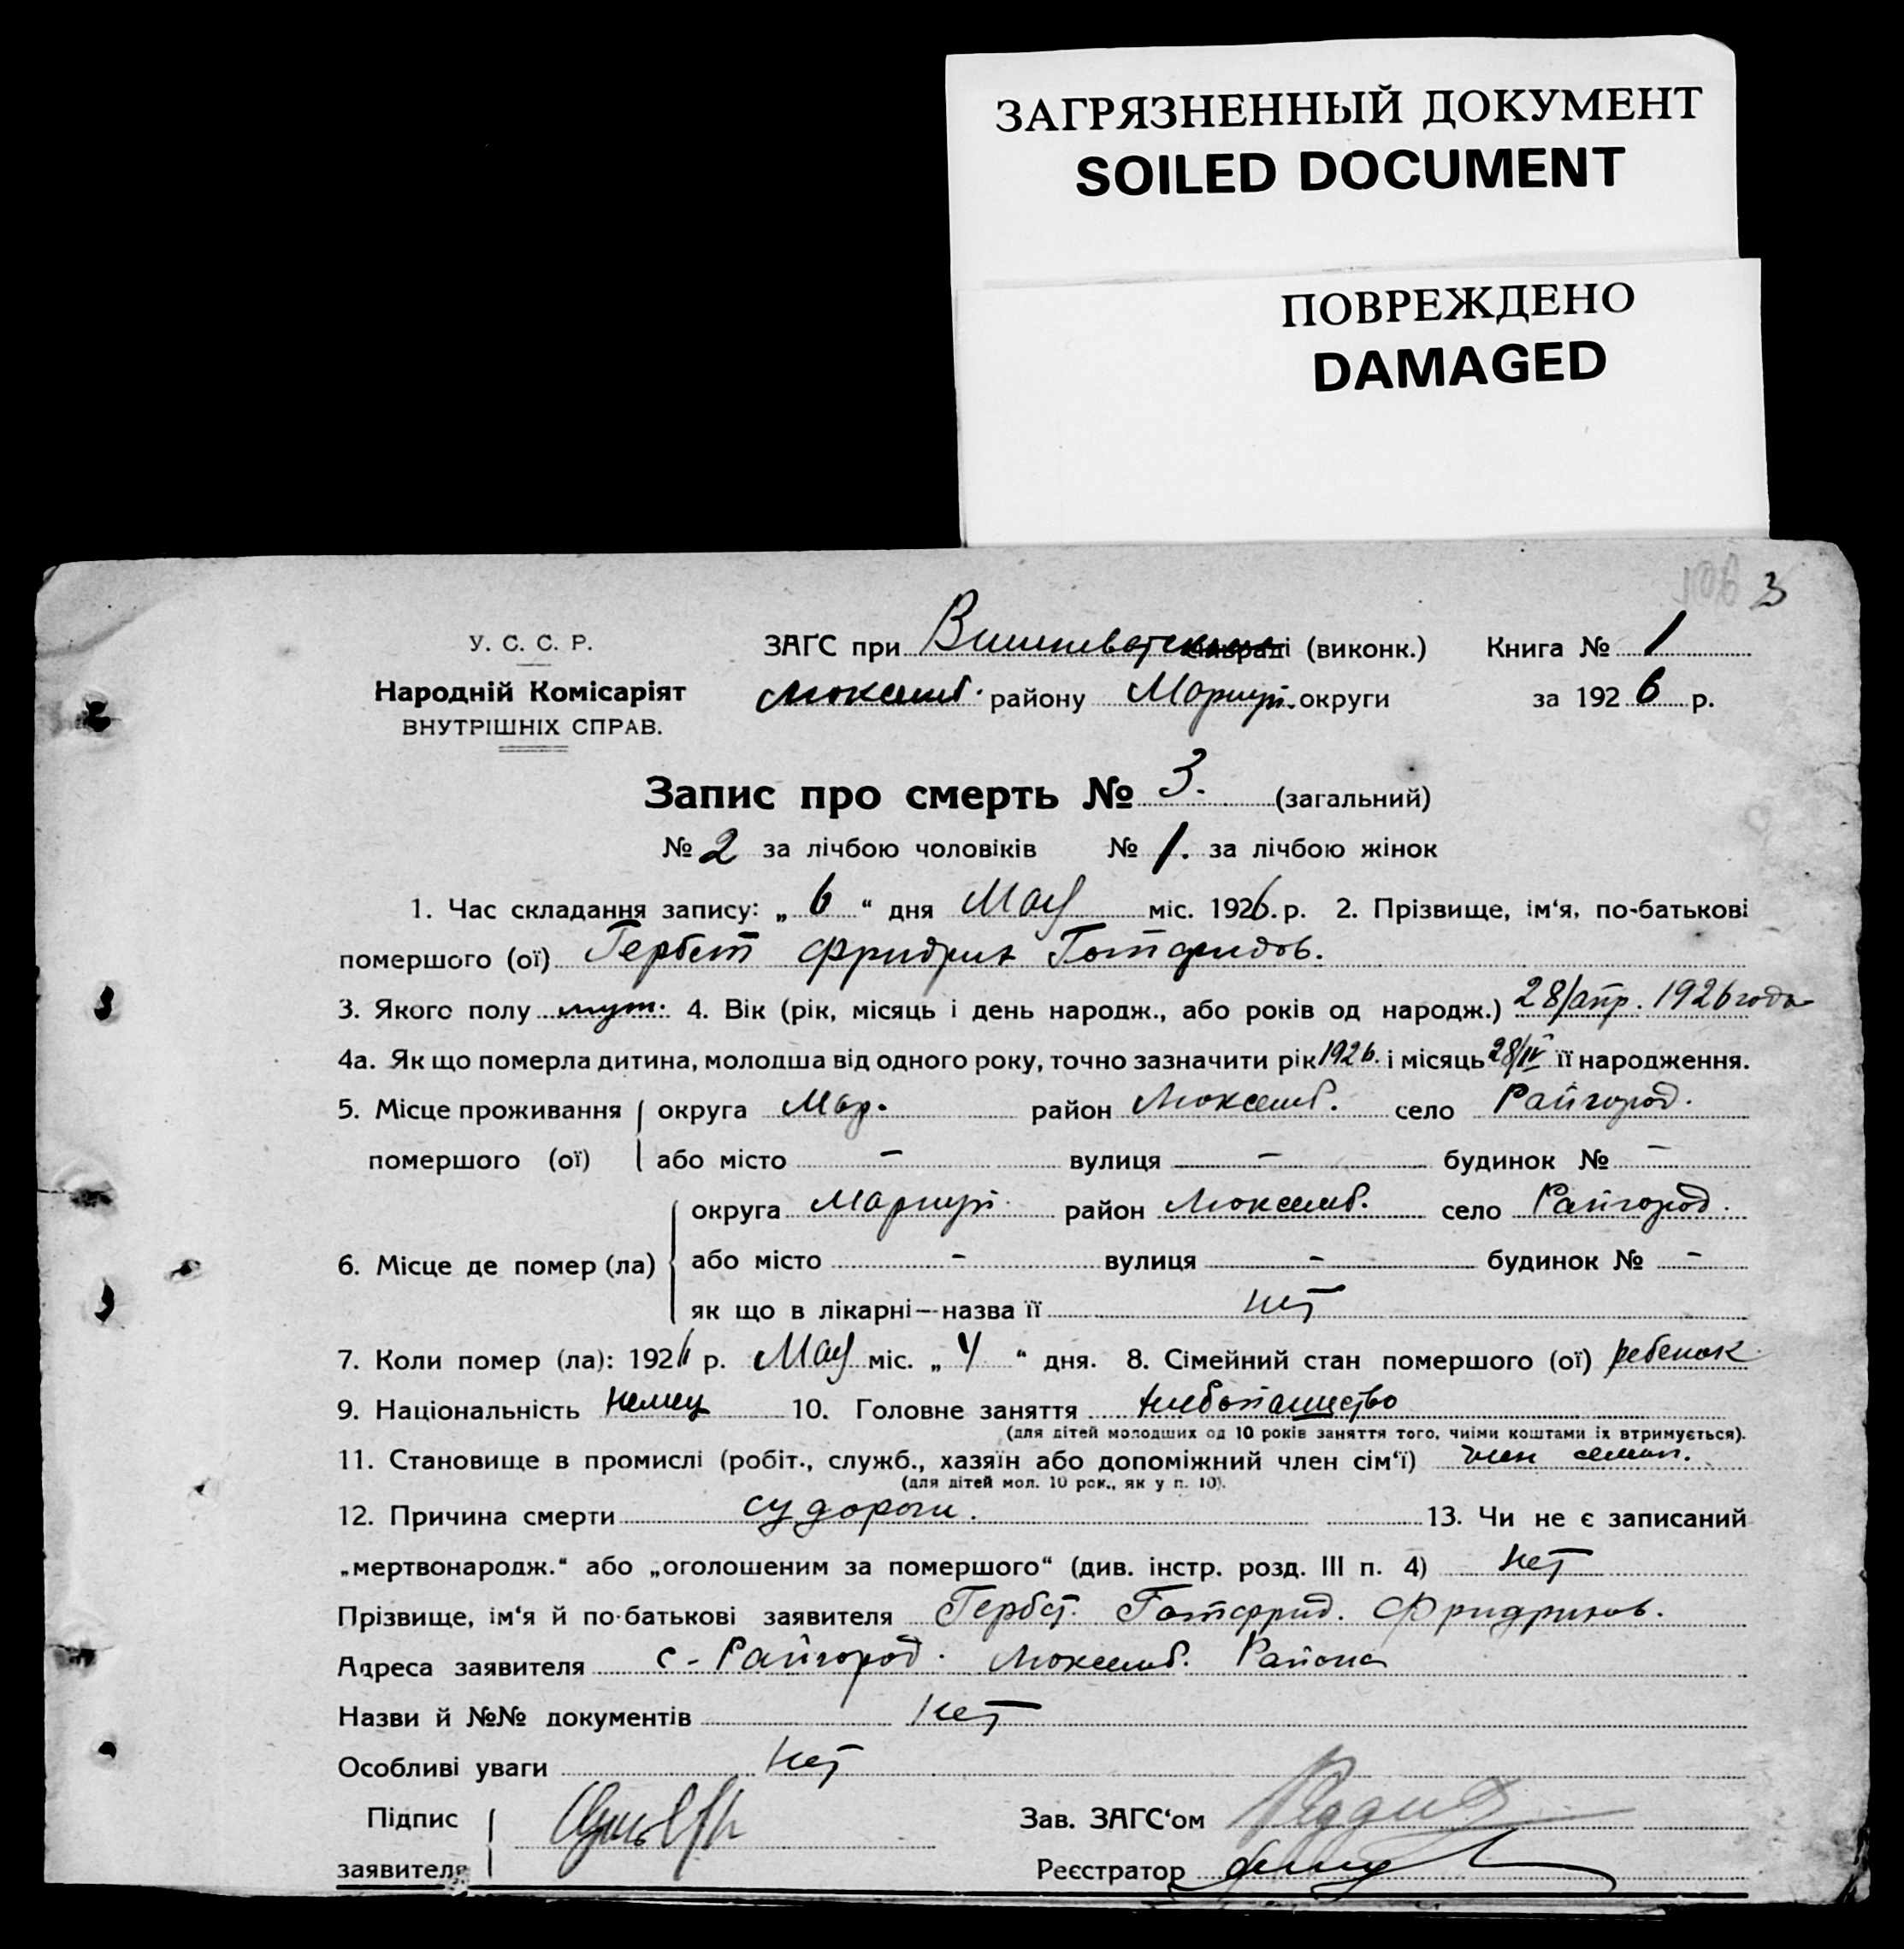 ЗАГРЯЗНЕННЫЙ ДОКУМЕНТ
SOILED DOCUMENT
ПОВРЕЖДЕНО
DAMAGED
106 3
У. С. С. Р. ЗАГС при сільраді (виконк.) Книга № 1
Народній Комісаріят Люксемб. району Мариуп. округи за 1926 р.
ВНУТРІШНІХ СПРАВ.
Запис про смерть № 3. (загальний)
№ 2 за лічбою чоловіків № 1. за лічбою жінок
1. Час складання запису: „ 6 “ дня Мая міс. 1926. р. 2. Прізвище, ім‘я, по-батькові
помершого (ої) Гербст Фридрих Готфридов.
3. Якого полу муж. 4. Вік (рік, місяць і день народж., або років од народж.) 28/апр. 1926 года
4а. Як що померла дитина, молодша від одного року, точно зазначити рік 1926. і місяць 28/IV її народження.
5. Місце проживання округа Мар. район Люксемб. село Райгород.
помершого (ої) або місто – вулиця – будинок № –
округа Мариуп. район Люксемб. село Райгород.
6. Місце де помер (ла) або місто – вулиця – будинок № –
як що в лікарні—назва її нет
7. Коли помер (ла): 1926 р. Мая міс. „ 4 “ дня. 8. Сімейний стан помершого (ої) ребенок
9. Національність немец 10. Головне заняття хлебопашество
(для дітей молодших од 10 років заняття того, чиїми коштами їх втримується).
11. Становище в промислі (робіт., служб., хазяїн або допоміжний член сім‘ї) член семьи.
(для дітей мол. 10 рок., як у п. 10).
12. Причина смерти судороги. 13. Чи не є записаний
„мертвонародж.“ або „оголошеним за помершого“ (див. інстр. розд. III п. 4) нет
Прізвище, ім‘я й по-батькові заявителя Гербст. Готфрид. Фридрихов.
Адреса заявителя с - Райгород. Люксемб. Района
Назви й №№ документів нет
Особливі уваги нет
Підпис Зав. ЗАГС‘ом
заявителя Реєстратор